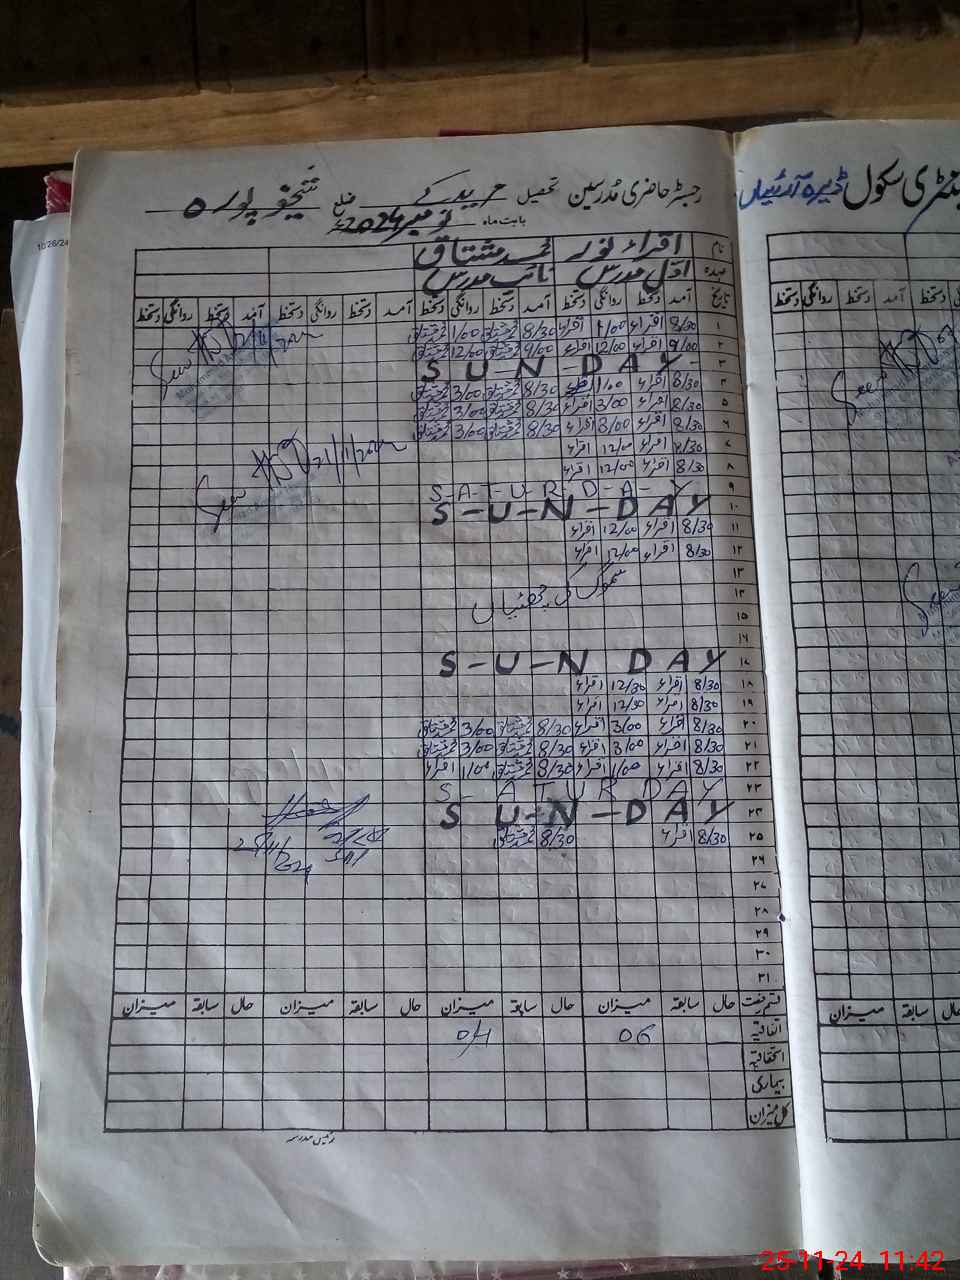 رجسٹر حاضری مُدرسین تحصیل مریدکے ضلع شیخوپورہ
بابت ماہ نومبر 2024ء
نٹری سکول ڈیرہ آرائیاں
10/26/24
نام اقراء نور محمد مشتاق
عہدہ اوّل مدرس نائب مدرس
تاریخ آمد دستخط روانگی دستخط آمد دستخط روانگی دستخط آمد دستخط روانگی دستخط آمد دستخط روانگی دستخط
۱ 8/30 اقراء 1/00 اقراء 8/30 محمد مشتاق 1/00 محمد مشتاق
۲ 9/00 اقراء 12/00 اقراء 9/00 محمد مشتاق 12/00 محمد مشتاق
۳ S U - N - D A Y
۴ 8/30 اقراء 1/00 8/30 محمد مشتاق 3/00 محمد مشتاق
۵ 8/30 اقراء 3/00 اقراء 8/30 محمد مشتاق 3/00 محمد مشتاق
۶ 8/30 اقراء 3/00 اقراء 8/30 محمد مشتاق 3/00 محمد مشتاق
۷ 8/30 اقراء 12/00 اقراء
۸ 8/30 اقراء 12/00 اقراء
۹ S-A-T-U-R-D-A-Y
۱۰ S-U-N-DAY
۱۱ 8/30 اقراء 12/00 اقراء
۱۲ 8/30 اقراء 12/00 اقراء
۱۳
۱۴ سموگ کی چھٹیاں
۱۵
۱۶
۱۷ S-U-N DAY
۱۸ 8/30 اقراء 12/30 اقراء
۱۹ 8/30 اقراء 12/30 اقراء
۲۰ 8/30 اقراء 3/00 اقراء 8/30 محمد مشتاق 3/00 محمد مشتاق
۲۱ 8/30 اقراء 3/00 اقراء 8/30 محمد مشتاق 3/00 محمد مشتاق
۲۲ 8/30 اقراء 1/00 اقراء 8/30 محمد مشتاق 1/00 اقراء
۲۳ S-ATUR DAY
۲۴ S U-N-DAY
۲۵ 8/30 اقراء 8/30 محمد مشتاق
۲۶
۲۷
۲۸
۲۹
۳۰
۳۱
Seen
Seen 21/11/2024
قسم رخصت حال سابقہ میزان حال سابقہ میزان حال سابقہ میزان حال سابقہ میزان
اتفاقیہ 06 04
استحقاقیہ
بیماری
کل میزان
رئیس مدرسہ
دستخط روانگی دستخط آمد
Seen
Seen
حال سابقہ میزان
25-11-24 11:42